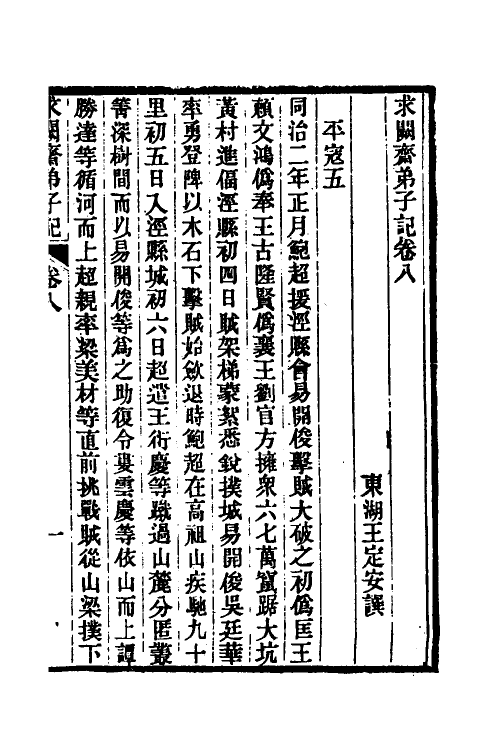 求闕齋弟子記卷八
東湖王定安譔
平寇五
同治二年正月鮑超援涇縣會易開俊擊賊大破之初僞匡王
賴文鴻僞奉王古隆賢僞襄王劉官方擁衆六七萬竄踞大坑
黃村進偪涇縣初四日賊架梯蒙絮悉銳撲城易開俊吳廷華
率勇登陴以木石下擊賊始斂退時鮑超在高祖山疾馳九十
里初五日入涇縣城初六日超遣王衍慶等蹴過山麓分匿叢
箐深樹間而以易開俊等爲之助復令婁雲慶等依山而上譚
勝達等循河而上超親率梁美材等直前挑戰賊從山梁撲下
求闕齋弟子記 卷八 一